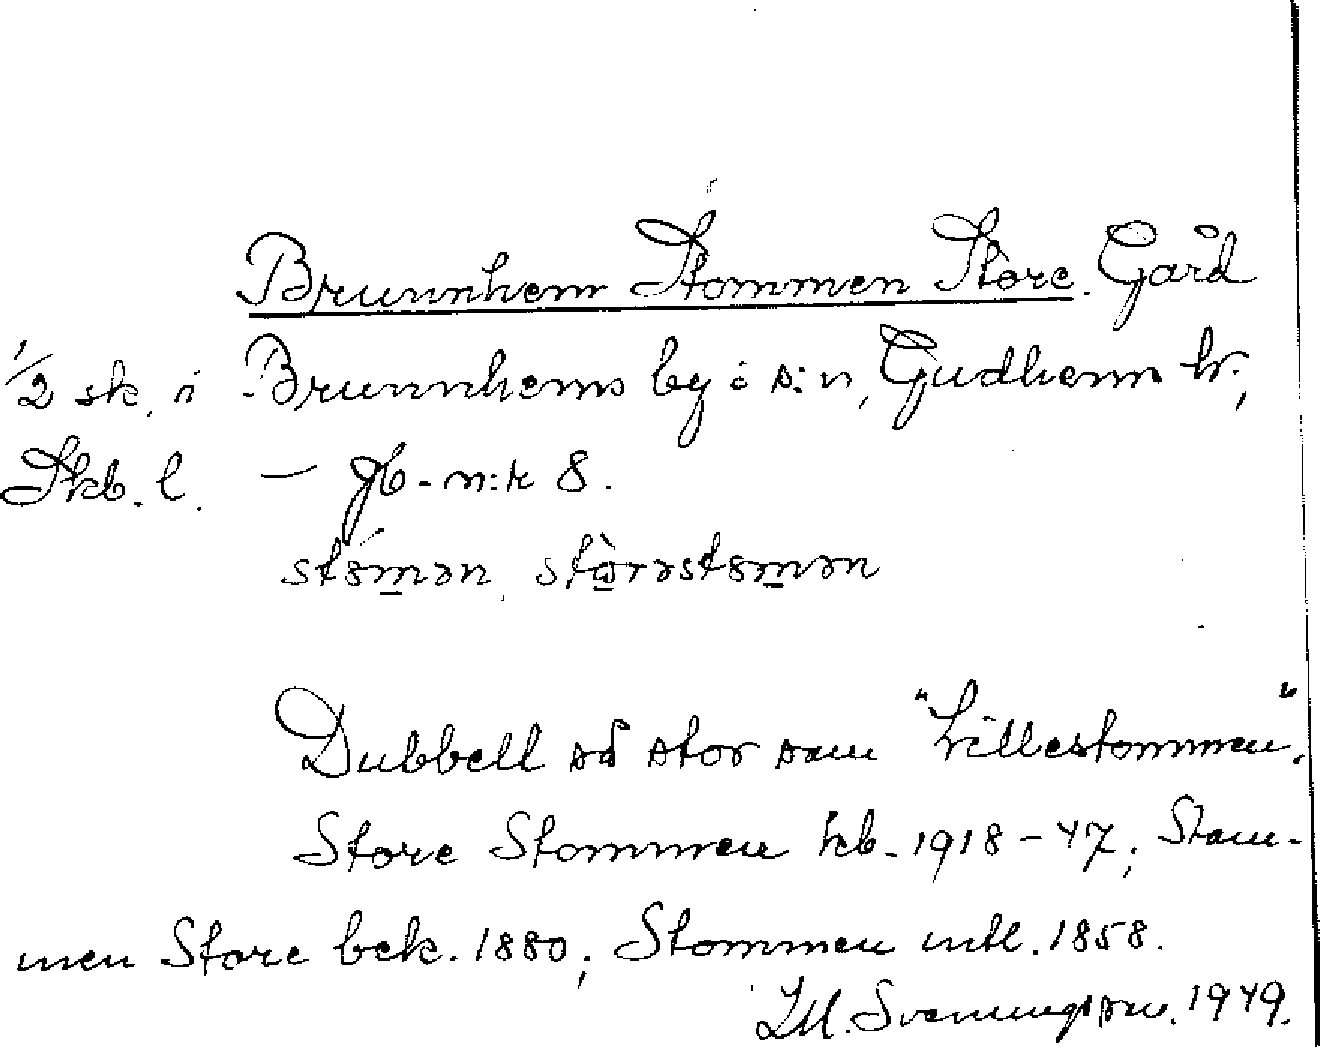 Brunnhem Stommen Store. Gård
1/2 sk. i Brunnhems by i s:n, Gudhem hr,
Skb. l. — Jb-n:r 8.
stómən, stòrəstomən
Dubbell så stor som "Lillestommen".
Store Stommen kb. 1918-47; Stom-
men Store bek. 1880; Stommen mtl. 1858.
Svenungsson. 1949.